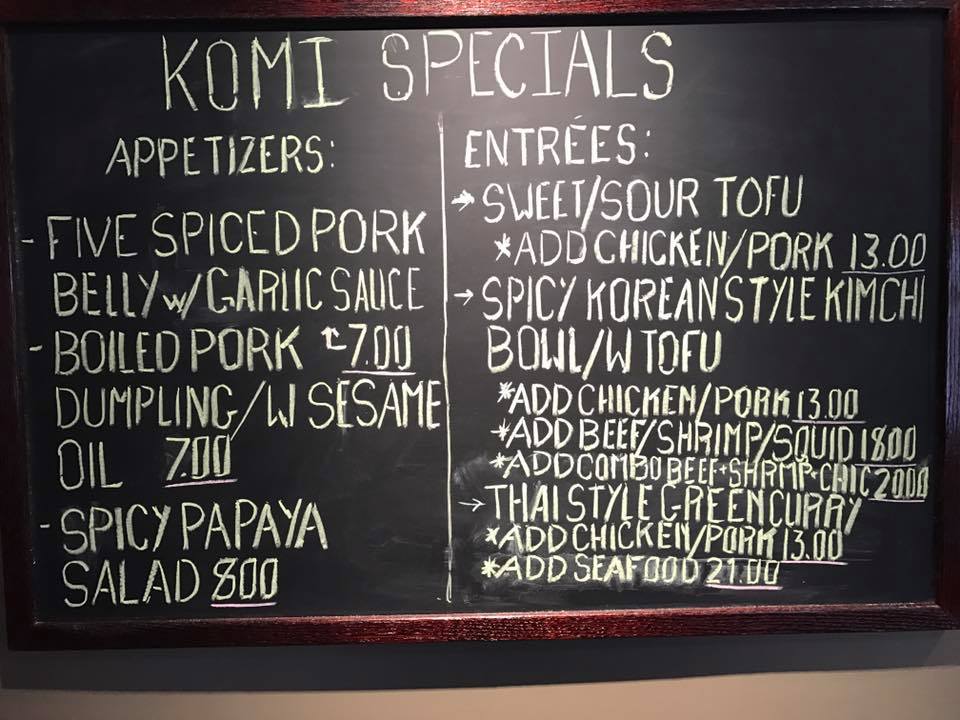 KOMI SPECIALS
APPETIZERS:
- FIVE SPICED PORK
BELLY w/GARLIC SAUCE
- BOILED PORK ↑7.00
DUMPLING/W SESAME
OIL 7.00
- SPICY PAPAYA
SALAD 800
ENTRÉES:
→ SWEET/SOUR TOFU
*ADD CHICKEN/PORK 13.00
→ SPICY KOREAN STYLE KIMCHI
BOWL/W TOFU
*ADD CHICKEN/PORK 13.00
*ADD BEEF/SHRIMP/SQUID 1800
*ADD COMBO BEEF+SHRMP+CHIC 2000
→ THAI STYLE GREEN CURRY
*ADD CHICKEN/PORK 13.00
*ADD SEAFOOD 21.00